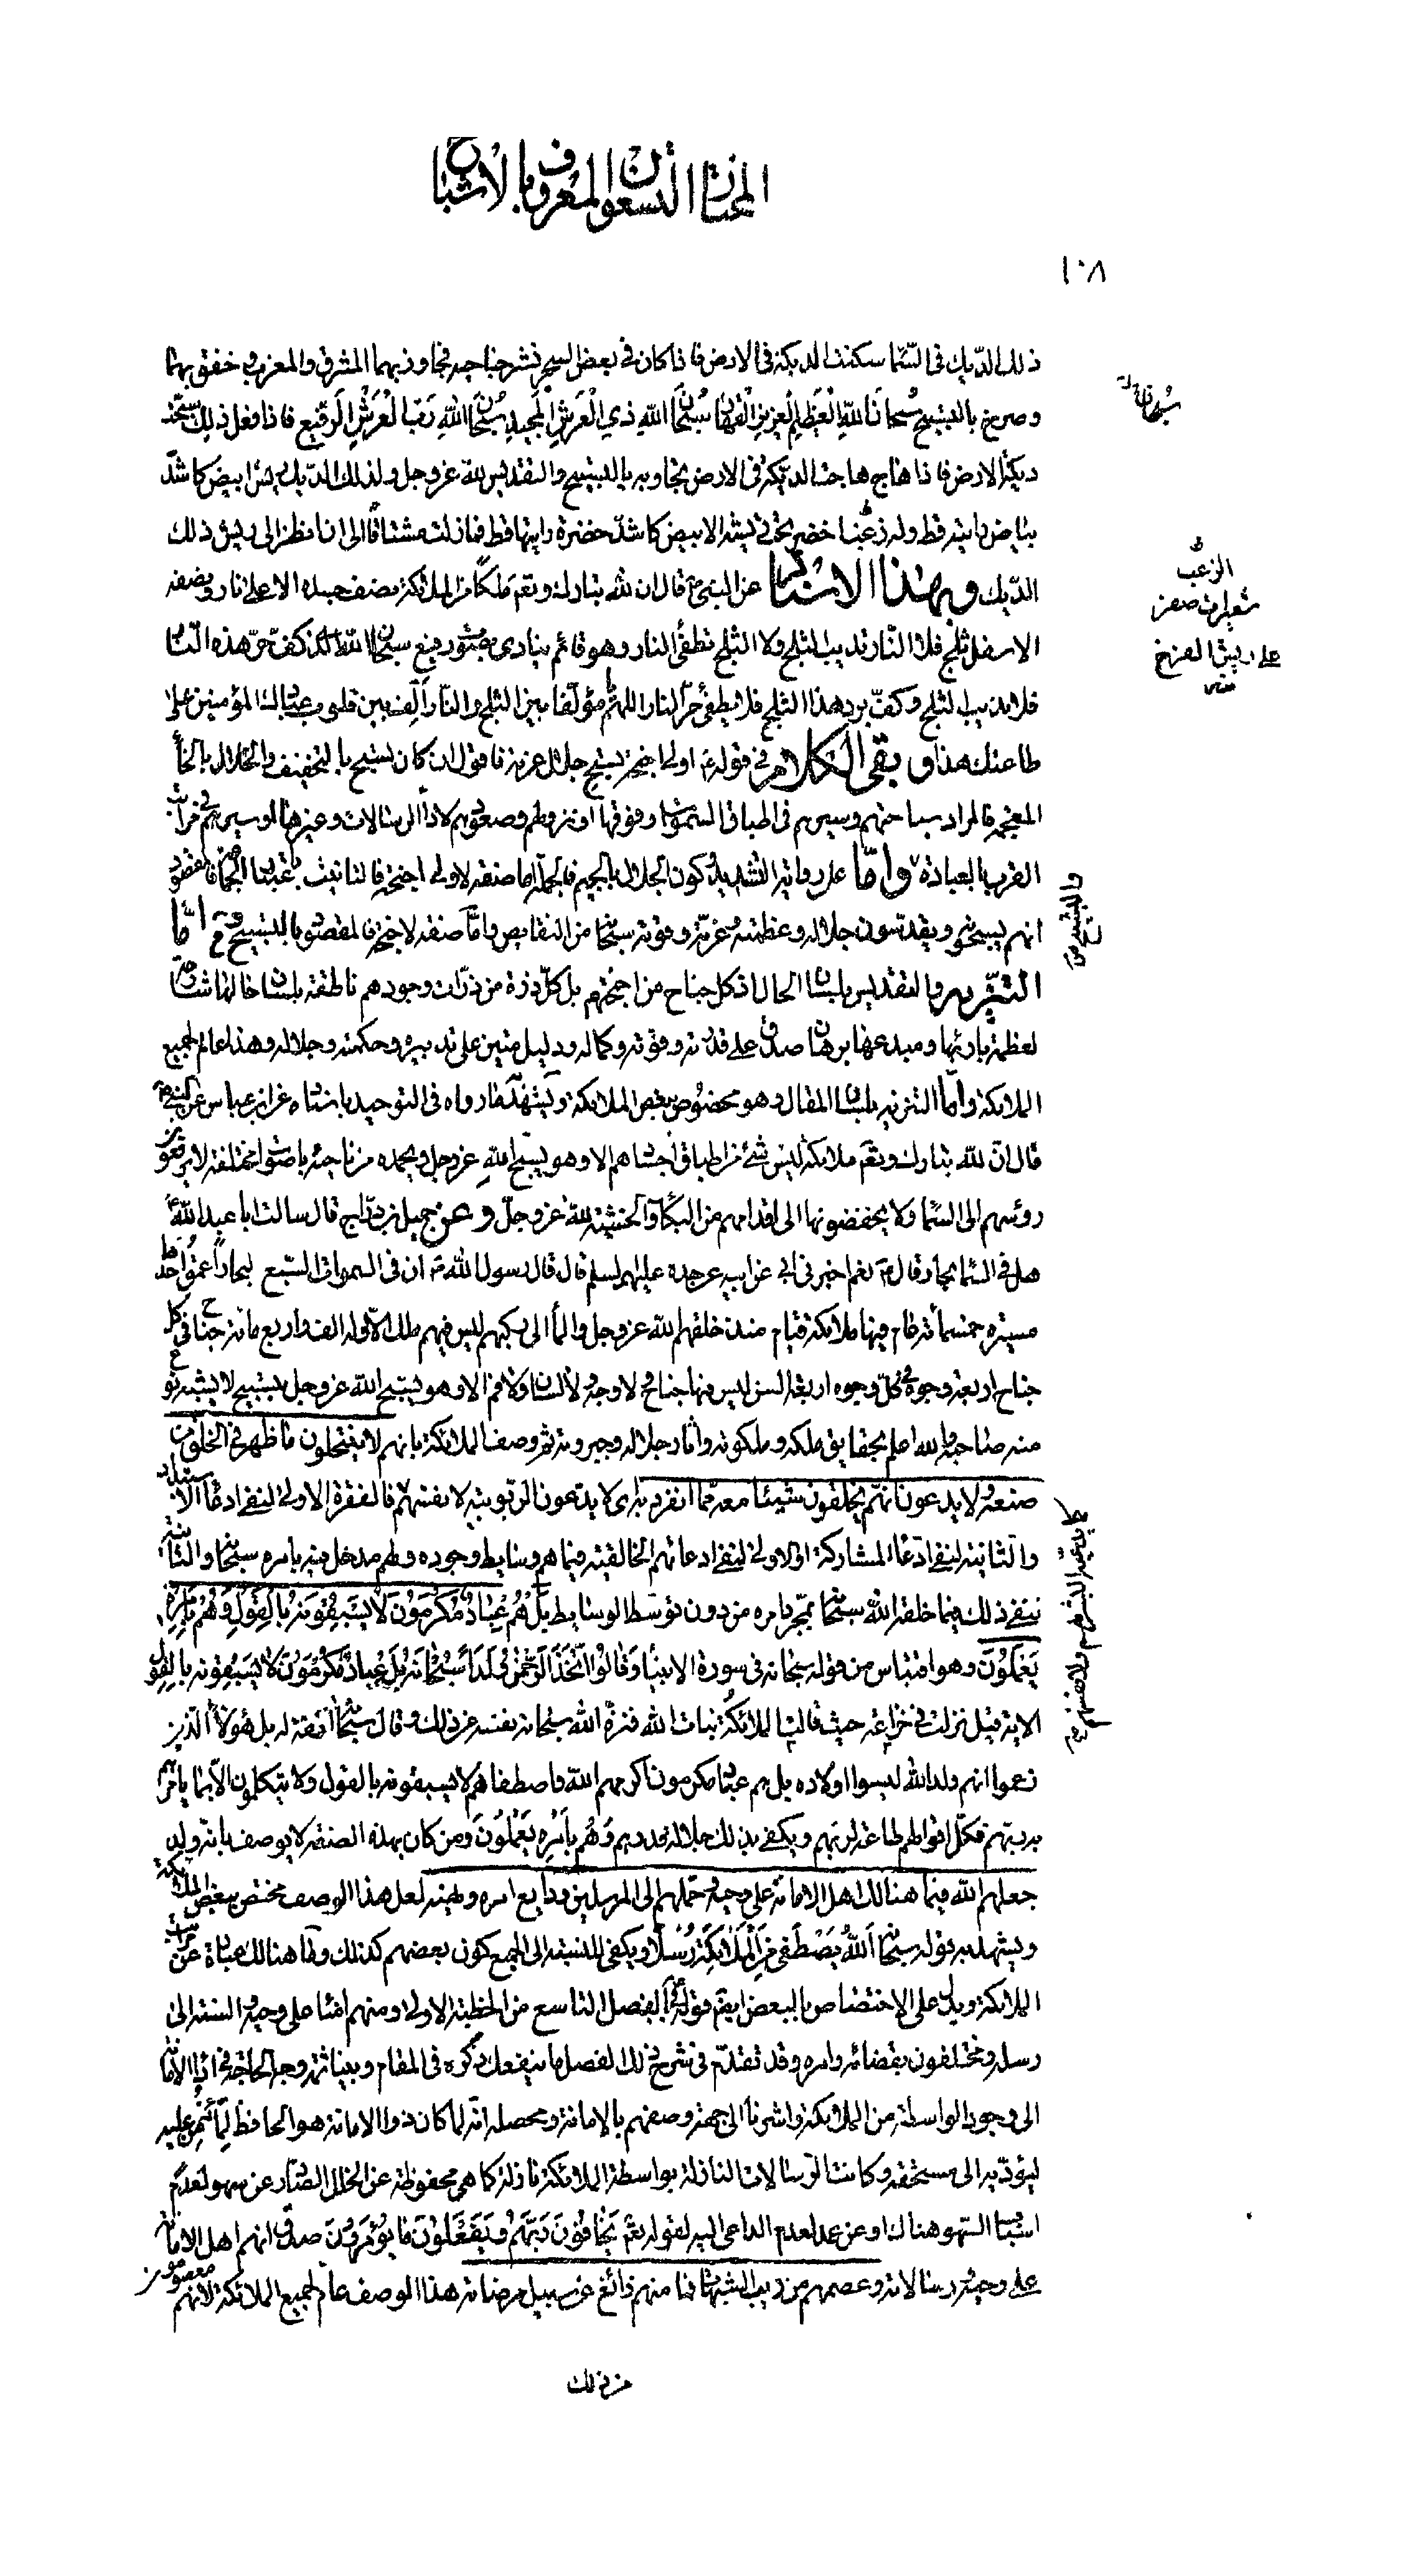 المختار التسعون المعروف بالاشباح
١٠٨
ذلك الديك في السماء سكنت الديكة في الارض فاذا كان في بعض السحر نشر جناحيه فجاوز بهما المشرق والمغرب وخفق بهما
وصرخ بالتسبيح سُبْحانَ اللهِ الْعَظيمِ الْعَزيزِ الْقَهّارِ سُبْحانَ اللهِ ذِي الْعَرْشِ الْمَجيدِ سُبْحانَ اللهِ رَبِّ الْعَرْشِ الرَّفيعِ فاذا فعل ذلك سبّحت
ديكة الارض فاذا هاج هاجت الديكة في الارض تجاوبه بالتسبيح والتقديس لله عز وجل ولذلك الديك ريش ابيض كاشدّ
بياض رايته قط وله زغب اخضر تحت ريشه الابيض كاشدّ خضرة رايتها قط فما زلت مشتاقاً الى ان انظر الى ريش ذلك
الديك وبهذا الاسناد عن النبي ص قال ان لله تبارك وتعم ملكا من الملائكة نصف جسده الاعلى نار ونصفه
الاسفل ثلج فلا النّار تذيب الثلج ولا الثلج تطفئ النار وهو قائم ينادي بصوت رفيع سبحان الله الذي كفّ حرّ هذه النّار
فلا تذيب الثلج وكفّ برد هذا الثلج فلا يطفئ حرّ النار اللهم مؤلفا بين الثلج والنّار الّف بين قلوب عبادك المؤمنين على
طاعتك هذا و بقى الكلام في قوله ع اولى اجنحة تسبّح جلال عزته فاقول ان كان تسبح بالتخفيف والخلال بالخاء
المعجمة فالمراد سباحتهم وسيرهم في اطباق السموات وفوقها او نزولهم وصعودهم لاداء الرسالات وغيرها او سيرهم في مراتب
القرب بالعبادة واما على رواية التشديد وكون الجلال بالجيم فالجملة اما صفة لاولى اجنحة فالتانيث باعتبار الجماعة فالمقصود
انهم يسبّحون ويقدّسون جلاله وعظمته وعزته وقوته سبحانه من النقايص واما صفة لاجنحة فالمقصود بالتسبيح ح اما
التنزيه والتقديس بلسان الحال اذ كل جناح من اجنحتهم بل كلّ ذرة من ذرّات وجودهم ناطقة بلسان حالها شاهدة
لعظمة بارئها ومبدعها برهان صدق على قدرته وقوته وكماله ودليل متين على تدبيره وحكمته وجلاله وهذا عام لجميع
الملائكة واما التنزيه بلسان المقال وهو مخصوص ببعض الملائكة ويشهد به ما رواه في التوحيد باسناده عن ابن عباس عن النبي ص
قال ان لله تبارك وتعم ملائكة ليس شئ من اطباق اجسادهم الا وهو يسبّح الله عز وجل ويحمده من ناحية باصوات مختلفة لا يرفعون
رؤسهم الى السماء ولا يخفضونها الى اقدامهم من البكاء والخشية لله عز وجلّ وعن جميل بن درّاج قال سالت ابا عبد الله ع
هل في السماء بحار قال ع نعم اخبرني ابي عن ابيه عن جده عليهم السلم قال قال رسول الله ص ان في السموات السبع لبحاراً عمق احدها
مسيرة خمسمائة عام فيها ملائكة قيام منذ خلقهم الله عز وجل والماء الى ركبهم ليس فيهم ملك الا وله الف واربع مائة جناح في كل
جناح اربعة وجوه في كلّ وجوه اربعة السن ليس فيها جناح ولا وجه ولا لسان ولا فم الا وهو يسبّح الله عز وجل بتسبيح لا يشبه نوع
منه صاحبه والله اعلم بحقايق ملكه وملكوته واثار جلاله وجبروته ثم وصف الملائكة بانهم لا ينتحلون ما ظهر في الخلق من
صنعه ولا يدعون انهم يخلقون شيئا معه مما انفرد به اى لا يدعون الربوبية لانفسهم فالفقرة الاولى لنفى ادعاء الاستبداد
والثانية لنفى ادعاء المشاركة او الاولى لنفى ادعائهم الخالقية فيما هم وسايط وجوده ولهم مدخل فيه بامره سبحانه والثانية
لنفى ذلك فيما خلقه الله سبحانه بمجرّد امره من دون توسّط الوسايط بَلْ هُمْ عِبادٌ مُكْرَمُونَ لا يَسْبِقُونَهُ بِالْقَوْلِ وَهُمْ بِاَمْرِهِ
يَعْمَلُونَ وهو اقتباس من قوله سبحانه في سورة الانبياء وَقالُوا اتَّخَذَ الرَّحْمنُ وَلَداً سُبْحانَهُ بَلْ عِبادٌ مُكْرَمُونَ لا يَسْبِقُونَهُ بِالْقَوْلِ
الاية قيل نزلت في خزاعة حيث قالت الملائكة بنات الله فنزّه الله سبحانه نفسه عن ذلك وقال سبحانه انفة له بل هؤلاء الّذين
زعموا انهم ولد الله ليسوا اولاده بل هم عباد مكرمون اكرمهم الله واصطفاهم لا يسبقونه بالقول ولا يتكلمون الا بما يامرهم
به ربّهم فكلّ اقوالهم طاعة لربهم ويكفى بذلك جلالة قدرهم وَهُمْ بِاَمْرِهِ يَعْمَلُونَ ومن كان بهذه الصفة لا يوصف بانه ولد
جعلهم الله فيما هنالك اهل الامانة على وحيه وحمّلهم الى المرسلين ودايع امره ونهيه لعل هذا الوصف مختص ببعض الملائكة
ويشهد به قوله سبحانه اَللهُ يَصْطَفي مِنَ الْمَلائِكَةِ رُسُلاً ويكفى للنسبة الى الجميع كون بعضهم كذلك وما هنالك عبارة عن مراتب
الملائكة ويدل على الاختصاص بالبعض ايضا قوله ع في الفصل التاسع من الخطبة الاولى ومنهم امناء على وحيه والسنة الى
رسله ومختلفون بقضائه وامره وقد تقدّم في شرح ذلك الفصل ما ينفعك ذكره في المقام وبينا ثمة وجه الحاجة في اداء الامانة
الى وجود الواسطة من الملائكة واشرنا الى جهة وصفهم بالامانة ومحصله انه لما كان ذو الامانة هو الحافظ لما ائتمن عليه
ليؤدّيه الى مستحقه وكانت الرسالات النازلة بواسطة الملائكة نازلة كما هي محفوظة عن الخلل الصّادر عن سهو لعدم
اسباب السّهو هناك او عن عمد لعدم الداعي اليه لقوله تعم يَخافُونَ رَبَّهُمْ وَيَفْعَلُونَ ما يُؤْمَرُونَ صدق انهم اهل الامانة
على وحيه ورسالاته وعصمهم من ريب الشبهات فما منهم زائغ عن سبيل مرضاته هذا الوصف عام لجميع الملائكة لانهم معصومون
من ذلك
الزغب
شعرات صفر
على ريش الفرخ